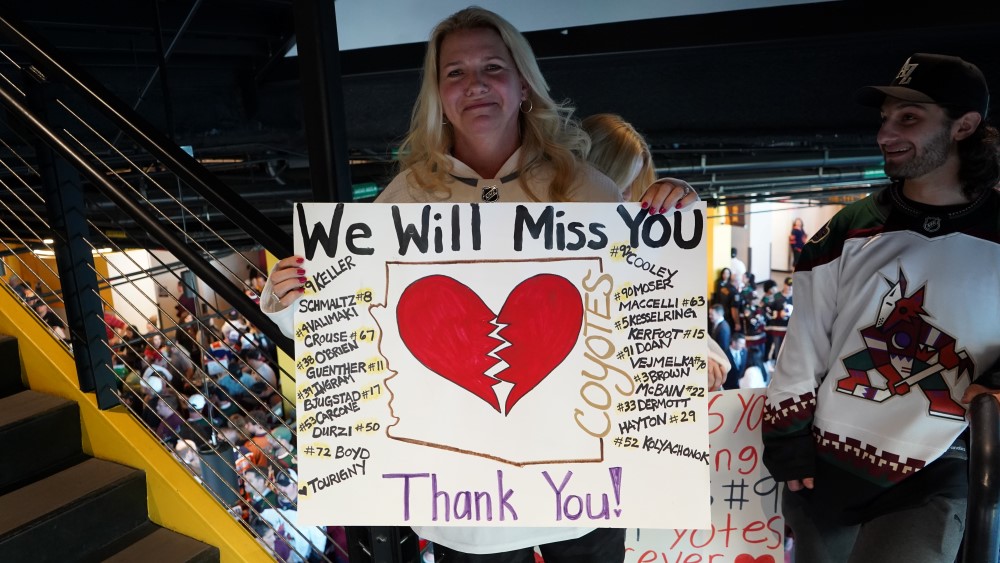 We Will Miss YOU
#9 KELLER
SCHMALTZ #8
#4 VALIMAKI
CROUSE #67
#38 O'BRIEN
GUENTHER #11
#39 INGRAM
BJUGSTAD #17
#53 CARCONE
DURZI #50
#72 BOYD
♥ TOURIGNY
COYOTES
#92 COOLEY
#90 MOSER
MACCELLI #63
#5 KESSELRING
KERFOOT #15
#91 DOAN
VEJMELKA #70
#3 BROWN
MCBAIN #22
#33 DERMOTT
HAYTON #29
#52 KOLYACHONOK
Thank You!
ng
#9
otes
ever ♥